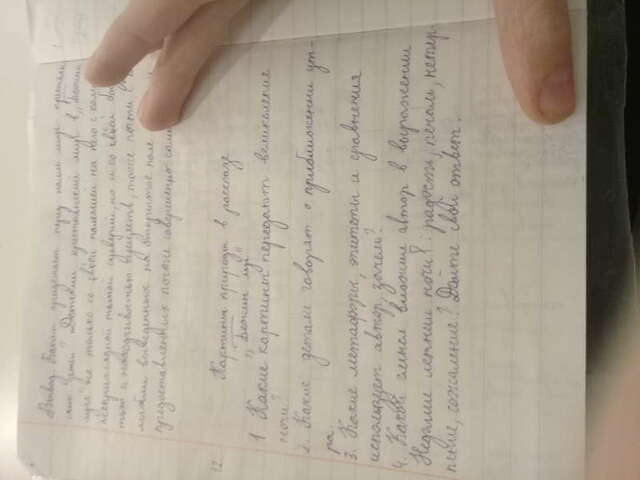 Вывод. Какой предстаёт перед нами мир крестьян-
ских детей? Детский крестьянский мир в „Бежин
луге" не только со своей поэзией на него с
тьмой суеверий, но и со своей
и находчивостью существ, тоже почти
выведенных на открытое поле
предоставленных почти совершенно
12
Картины природы в рассказе
„Бежин луг"
1 Какие картины передают великолепие
ночи?
2. Какие детали говорят о приближении ут-
ра.
3. Какие метафоры, эпитеты и сравнения
использует автор, зачем?
4. Какой смысл вложил автор в выражении
Недолгие летние ночи? : радость, печаль, нетер-
пение, сожаление? Дайте свой ответ.